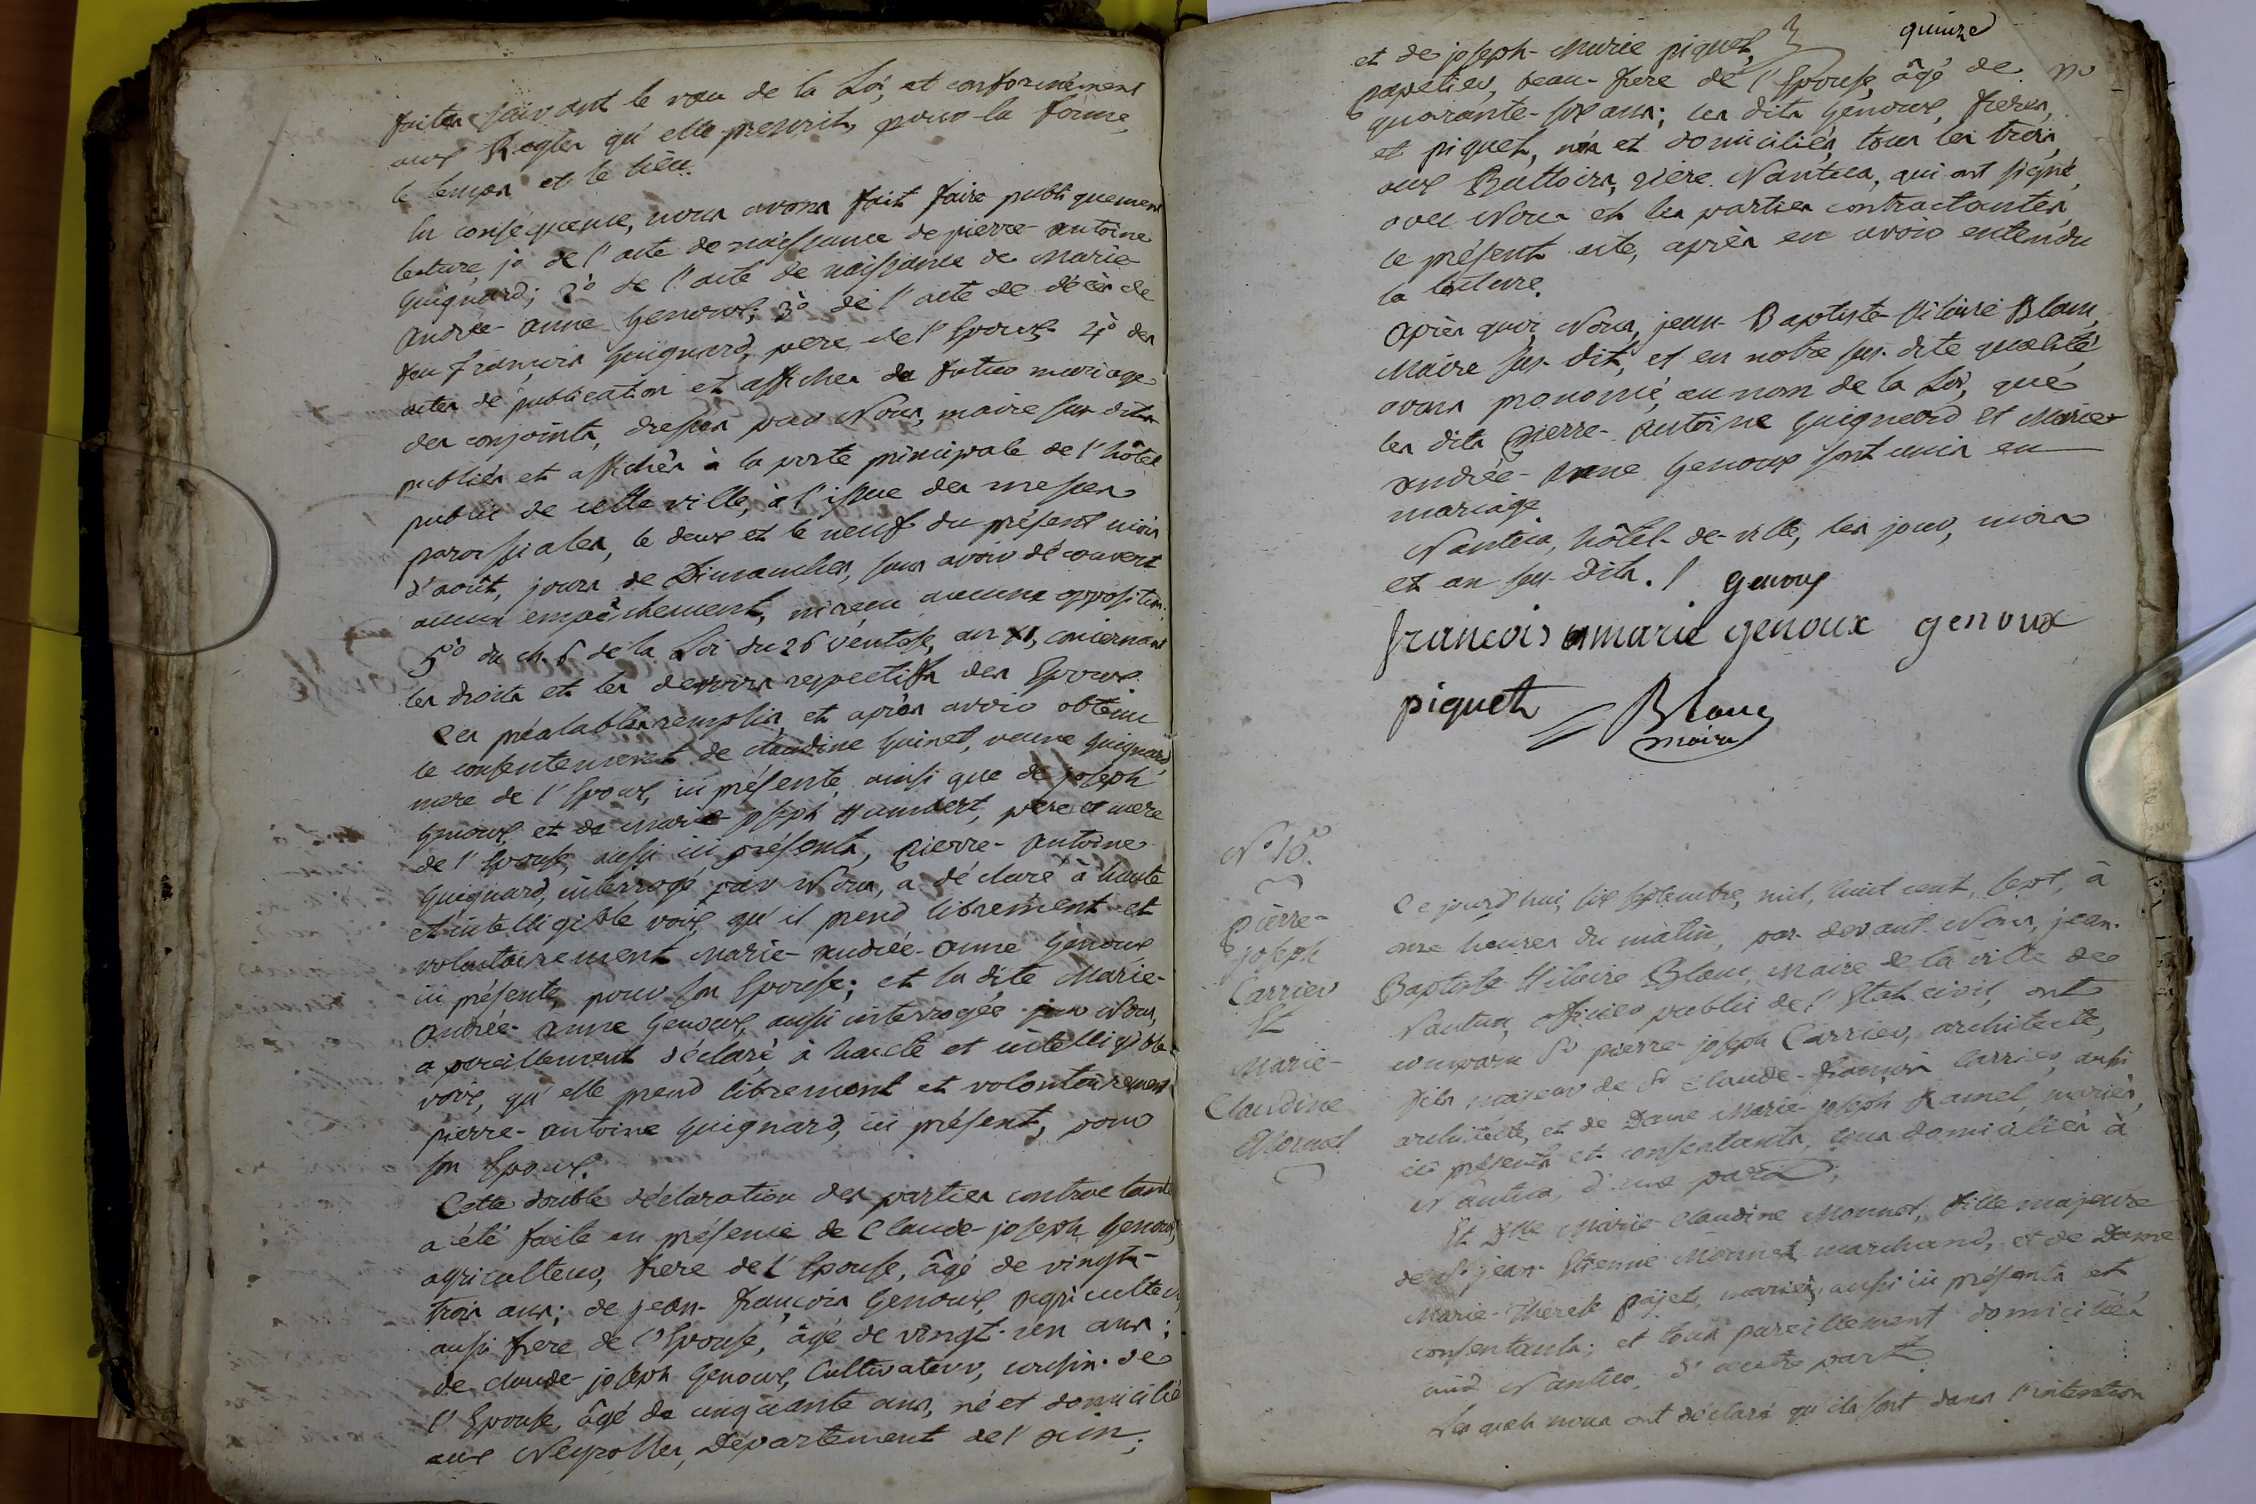 faites suivant le vœu de la Loi, et conformément
aux Regles qu'elle prescrit, pour la forme,
le temps et le lieu.
En conséquence, nous avons fait faire publiquement
lecture, 1º de l'acte de naissance de pierre-antoine
Guignard; 2º de l'acte de naissance de Marie
Andrée-anne Genoux; 3º de l'acte de décès de
feu françois Guignard, pere de l'Epoux 4º des
actes de publication et affiches de futur mariage
des conjoints, dressés par Nous, maire sus dit
publiés et affichés à la porte principale de l'hôtel
public de cette ville, à l'issue des messes
paroissiales, le deux et le neuf du présent mois
d'août, jours de Dimanches, sans avoir découvert
aucun empêchement, ni reçu aucune opposition.
5º du ch. 6 de la Loi du 26 ventôse, an XI, concernant
les droits et les devoirs respectifs des Epoux.
Ces préalables remplis, et après avoir obtenu
le consentement de claudine Guinet, veuve Guignard,
mere de l'Epoux, ici présente, ainsi que de joseph
Genoux et de Marie-joseph Humbert, pere et mere
de l'Epouse, aussi ici présents, pierre-antoine
Guignard, interrogé par Nous, a déclaré à haute
et intelligible voix, qu'il prend librement et
volontairement Marie-andrée-anne Genoux
ici présente, pour son Epouse; et la dite Marie-
Andrée-anne Genoux, aussi interrogée par Nous,
a pareillement déclaré à haute et intelligible
voix, qu'elle prend librement et volontairement
pierre-antoine Guignard, ici présent, pour
son Epoux.
Cette double déclaration des parties contractantes
a été faite en présence de Claude-joseph Genoux,
agriculteur, frere de l'Epouse, âgé de vingt-
trois ans; de jean-françois Genoux, agriculteur,
aussi frere de l'Epouse, âgé de vingt-un ans;
de claude-joseph Genoux, Cultivateur, cousin de
l'Epouse, âgé de cinquante ans, né et domicilié
aux Neyrolles, Département de l'ain;
quinze
et de joseph-Marie piquet,
papetier, beau-frere de l'Epouse, âgé de
quarante-six ans; les dits Genoux, freres,
et piquet, nés et domiciliés, tous les trois,
aux Battoirs, riere Nantua, qui ont signé,
avec Nous et les parties contractantes,
le présent acte, après en avoir entendu
la lecture.
Après quoi, Nous, jean-Baptiste-Hilaire Blanc,
Maire sus-dit, et en notre sus-dite qualité,
avons prononcé, au nom de la Loi, que
les dits Pierre-Antoine Guignard et Marie-
andrée-Anne Genoux sont unis en
mariage
Nantua, hôtel-de-ville, les jour, mois
et an sus-dits. / Genoux
francois marie genoux genoux
piquet Blanc
maire
Nº 16.
Pierre-
joseph
Carrier
Et
Marie-
Claudine
Monnet
Ce jourd'hui, six septembre, mil, huit cent, sept, à
onze heures du matin, par devant Nous, jean-
Baptiste Hilaire Blanc, Maire de la ville de
Nantua, officier public de l'Etat civil, ont
comparu Sr pierre-joseph Carrier, architecte,
fils majeur de Sr Claude-françois Carrier, aussi
architecte, et de Dame Marie-joseph Ramel, mariés,
ici présents et consentants, tous domiciliés à
Nantua, d'une part;
Et Dlle Marie-Claudine Monnet, fille majeure
de Sr jean-Etienne Monnet, marchand, et de Dame
Marie-Thérèse Pajet, mariés, aussi ici présents et
consentants; et tous pareillement domiciliés
aud Nantua, d'autre part.
Lesquels nous ont déclaré qu'ils sont dans l'intention